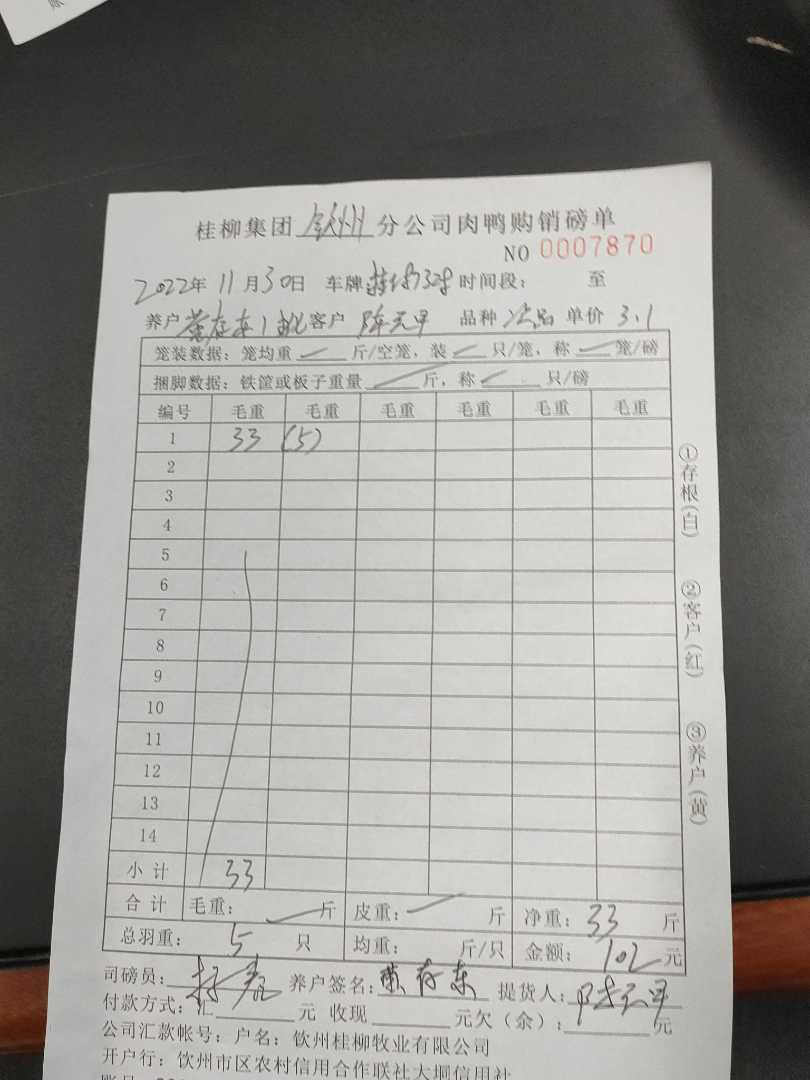 桂柳集团 钦州 分公司肉鸭购销磅单
NO 0007870
2022年 11月30日 车牌 时间段： 至
养户 客户 陈天甲 品种 次品 单价 3.1
笼装数据：笼均重 斤/空笼，装 只/笼，称 笼/磅
捆脚数据：铁筐或板子重量 斤，称 只/磅
编号 毛重 毛重 毛重 毛重 毛重 毛重
1 33 (5)
2
3
4
5
6
7
8
9
10
11
12
13
14
小计 33
合计 毛重： 斤 皮重： 斤 净重：33 斤
总羽重： 5 只 均重： 斤/只 金额：102元
司磅员： 养户签名： 提货人：
付款方式：汇 元 收现 元欠（余）： 元
公司汇款帐号：户名：钦州桂柳牧业有限公司
开户行：钦州市区农村信用合作联社大垌信用社
①存根(白)
②客户(红)
③养户(黄)